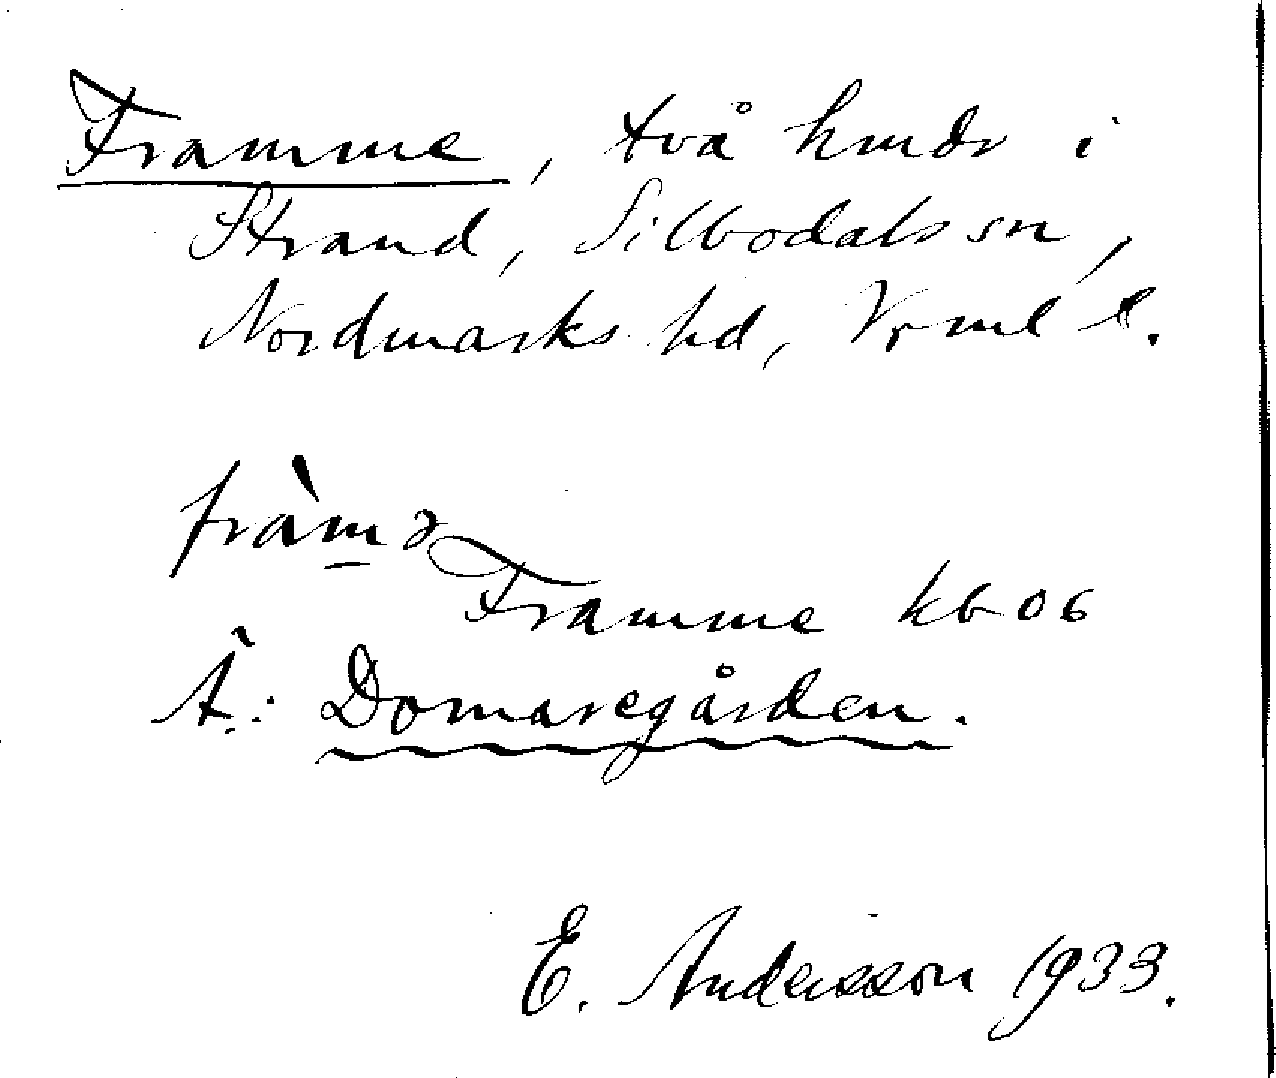 Framme, två hmdr i
Strand, Silbodals sn,
Nordmarks hd, Vrml l.
fràmə
Framme kb 06
Ä.: Domaregården.
E. Andersson 1933.